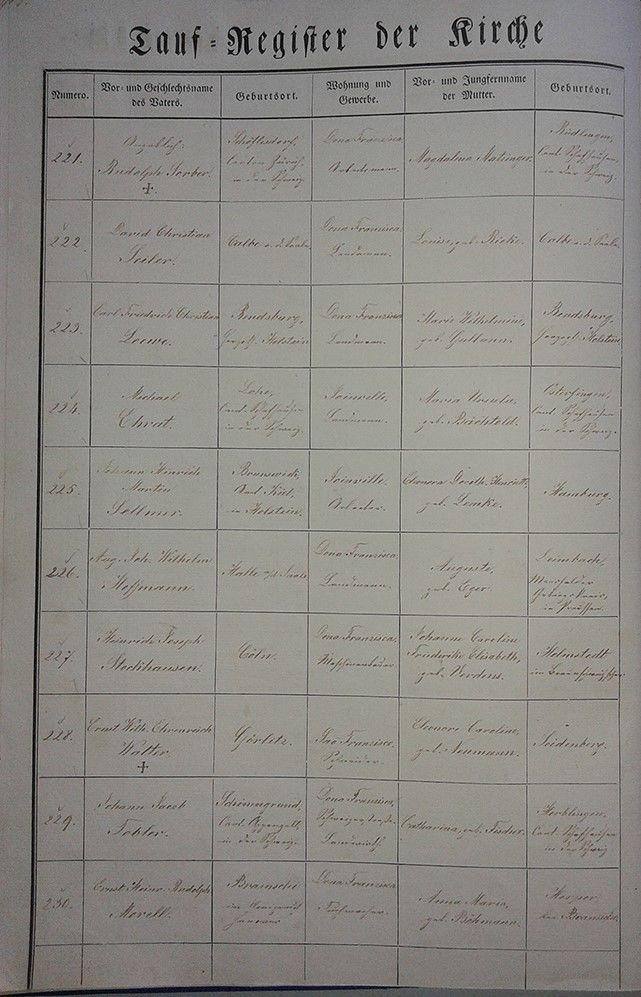 Tauf-Register der Kirche
Numero.
Vor- und Geschlechtsname
des Vaters.
Geburtsort.
Wohnung und
Gewerbe.
Vor- und Jungfernname
der Mutter.
Geburtsort.
221.
Rudolph
Canton Zürich,
in der Schweiz.
Dona Francisca
Magdalina
Cant. Schafhausen,
in der Schweiz.
222.
David Christian
Calbe a. d. Saale.
Dona Francisca
Landmann.
Louise, geb.
Calbe a. d. Saale.
223.
Carl Friedrich Christian
Loewe.
Rendsburg,
Herzogth. Holstein
Dona Francisca
Landmann.
Marie Wilhelmine,
geb.
Rendsburg,
Herzogth. Holstein
224.
Michael
Ehrat.
Lohn,
Cant. Schafhausen
in der Schweiz.
Joinville.
Landmann.
Maria Ursula,
geb. Bächtold.
Osterfingen,
Cant. Schafhausen
in der Schweiz.
225.
Johann Hinrich
Martin
Brunswick,
Amt Kiel,
in Holstein.
Joinville.
Arbeiter.
Eleonora Doroth. Henriette,
geb. Lemke.
Hamburg.
226.
Aug. Joh. Wilhelm
Hoffmann.
Halle a/d Saale.
Dona Francisca,
Landmann.
Auguste,
geb. Eger.
Leimbach,
Mansfelder
Gebirgskreis,
in Preußen.
227.
Heinrich Joseph
Stockhausen.
Cöln.
Dona Francisca,
Maschinenbauer.
Johanne Caroline
Friederike Elisabeth,
geb.
Helmstedt
im Braunschweigischen
228.
Ernst Wilh. Ehrenreich
Walter.
Görlitz.
Sao Francisco.
Eleonore Caroline,
geb. Neumann.
Seidenberg.
229.
Johann Jacob
Tobler.
Schönengrund,
Cant. Appenzell,
in der Schweiz.
Dona Francisca,
Landwirth.
Catharina, geb. Fischer.
Herblingen,
Cant. Schafhausen
in der Schweiz
230.
Ernst Heinr. Rudolph
Morell.
Bramsche
im Königreich
Hannover
Dona Francisca
Anna Maria,
geb. Böhmann.
bei Bramsche.